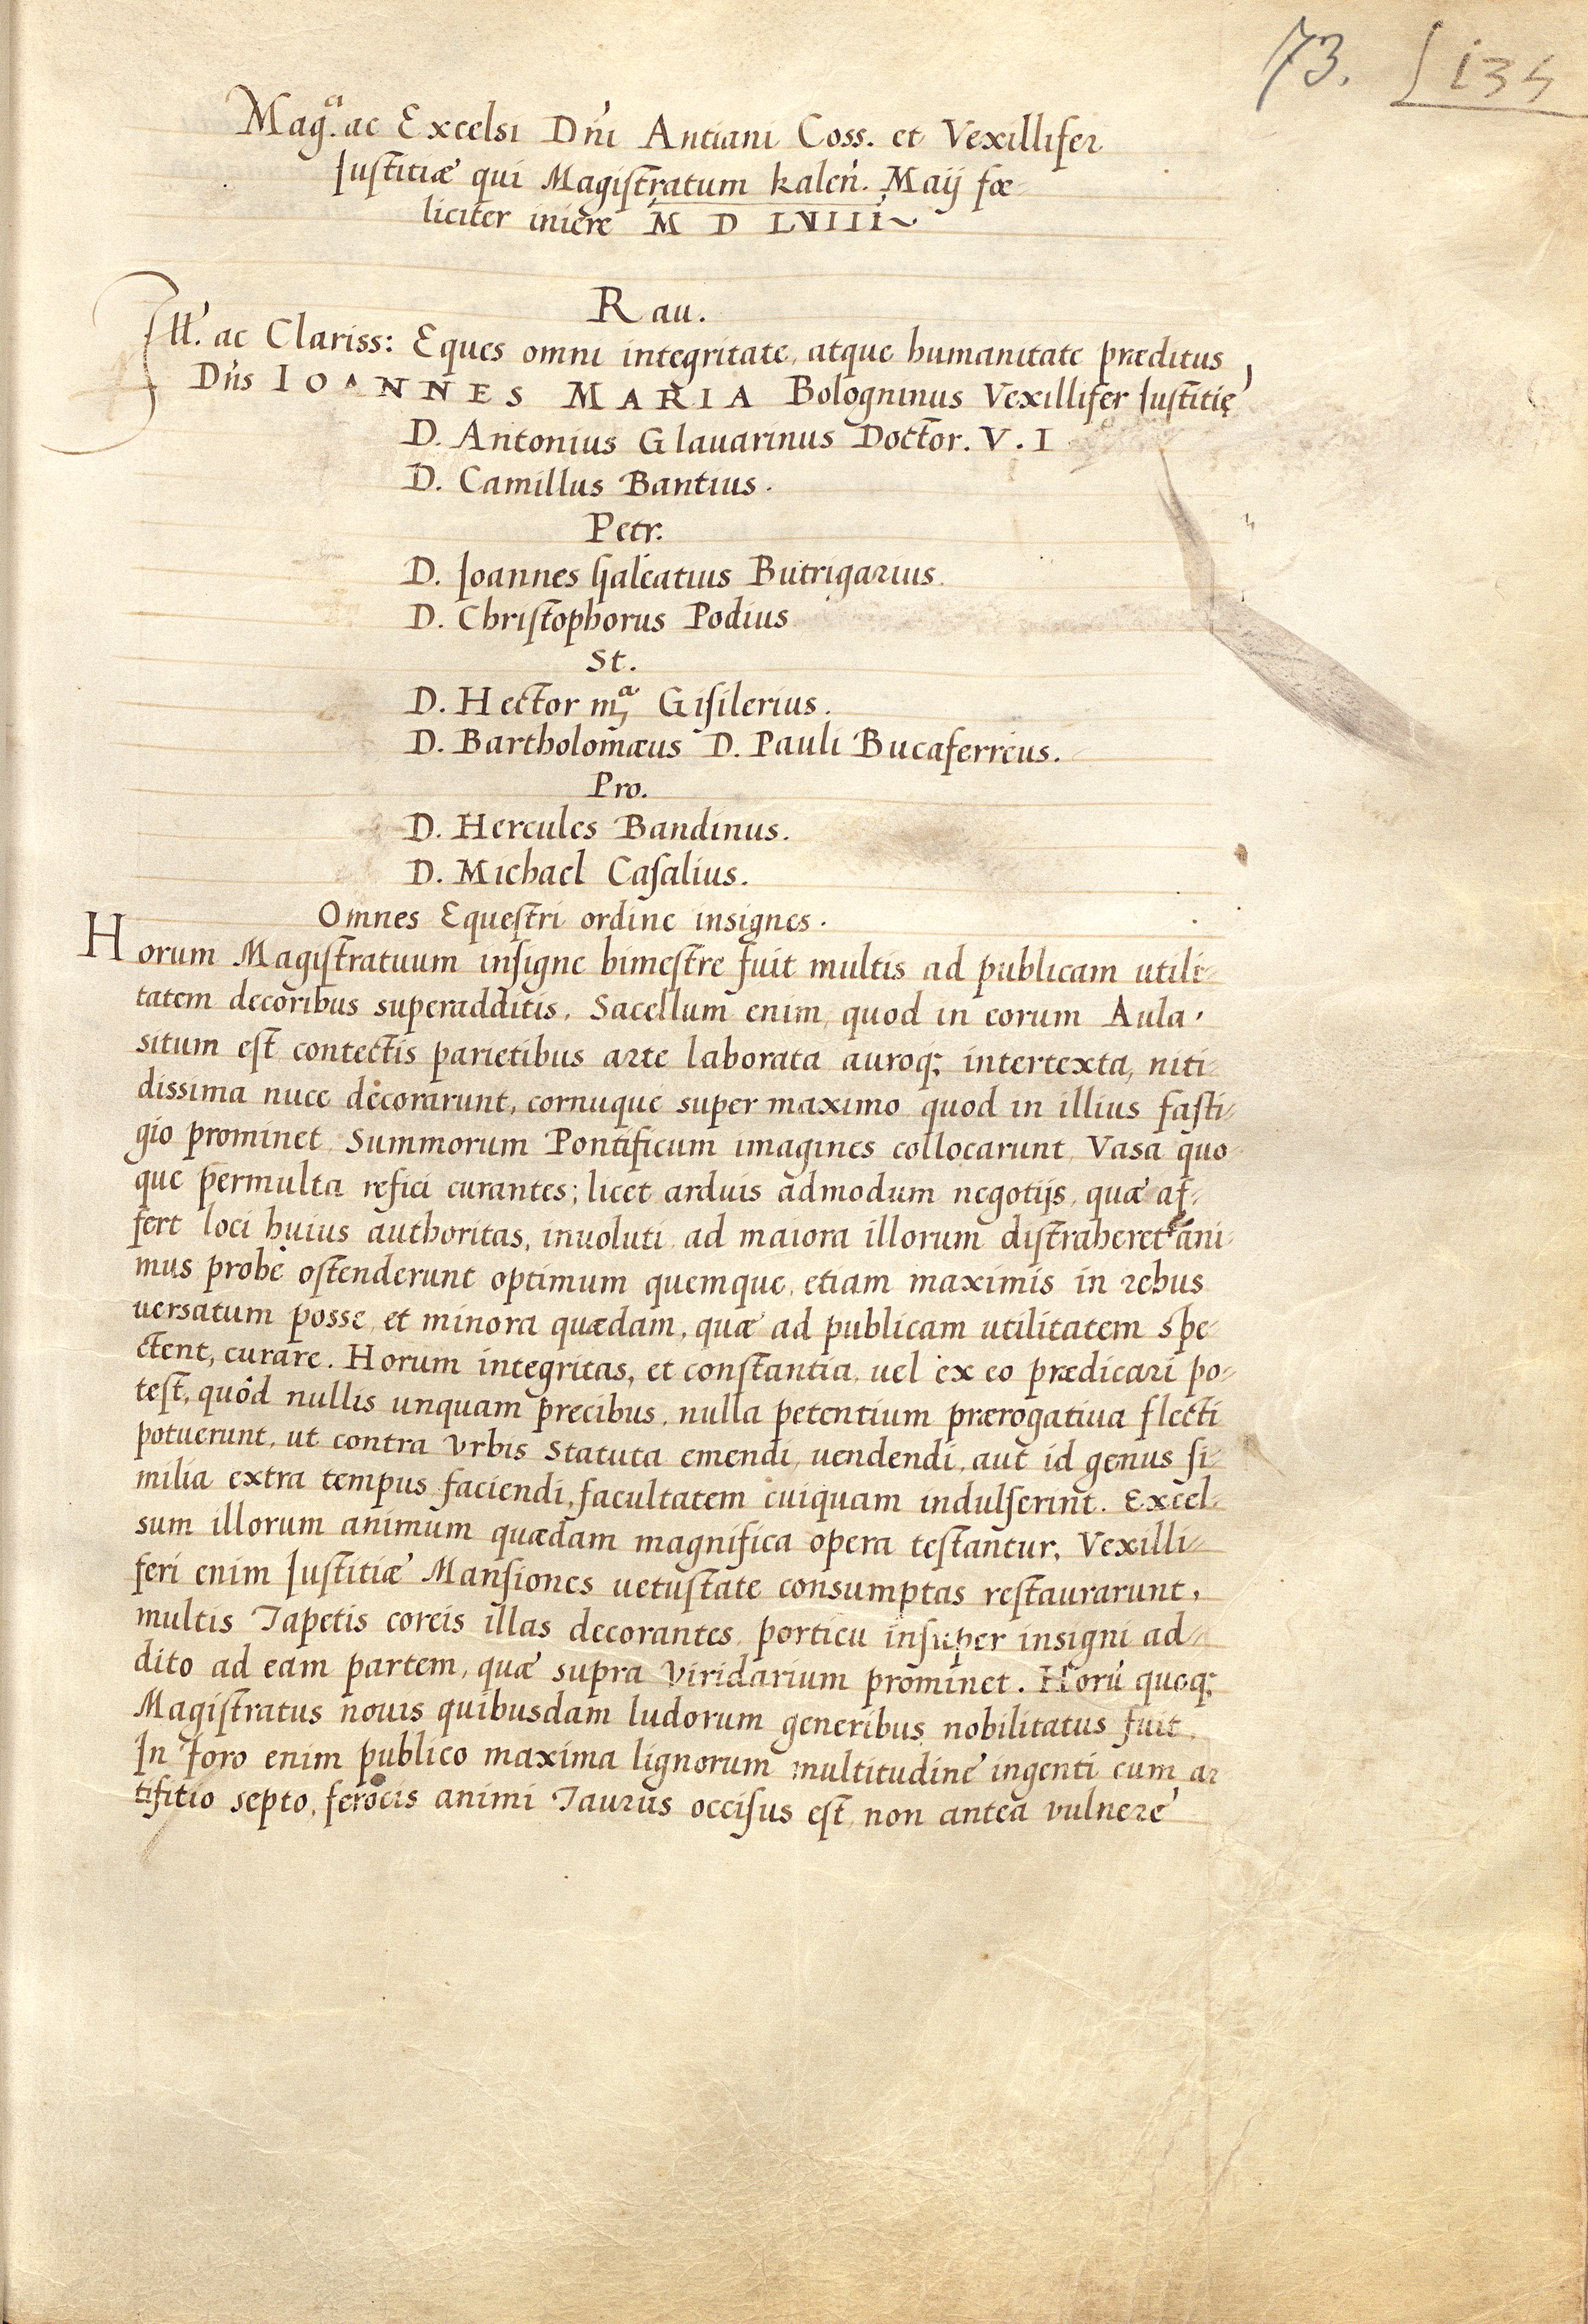 73. 134
Mag.ci ac Excelsi Dńi Antiani Coss. et Vexillifer
Iustitiæ qui Magistratum kaleń. Maij fœ-
liciter iniere M D LVIIII
Rau.
Ill. ac Clariss: Eques omni integritate, atque humanitate præditus
Dńs IOANNES MARIA Bologninus Vexillifer Iustitię
D. Antonius Glauarinus Doctor. V. I
D. Camillus Bantius.
Petr.
D. Ioannes Galeatius Butrigarius.
D. Christophorus Podius
St.
D. Hector m.a Gisilerius.
D. Bartholomæus D. Pauli Bucaferreus.
Pro.
D. Hercules Bandinus.
D. Michael Casalius.
Omnes Equestri ordine insignes.
Horum Magistratuum insigne bimestre fuit multis ad publicam utili-
tatem decoribus superadditis, Sacellum enim, quod in eorum Aula,
situm est contectis parietibus arte laborata auroq; intertexta, niti-
dissima nuce decorarunt, cornuque super maximo quod in illius fasti-
gio prominet Summorum Pontificum imagines collocarunt, Vasa quo-
que permulta refici curantes; licet arduis admodum negotijs, quæ af-
fert loci huius authoritas, inuoluti ad maiora illorum distraheret ani-
mus probè ostenderunt optimum quemque, etiam maximis in rebus
uersatum posse, et minora quædam, quæ ad publicam utilitatem spe-
ctent, curare. Horum integritas, et constantia, uel ex eo prædicari po-
test, quòd nullis unquam precibus, nulla petentium prærogatiua flecti
potuerunt, ut contra Vrbis Statuta emendi, uendendi, aut id genus si-
milia extra tempus faciendi, facultatem cuiquam indulserint. Excel-
sum illorum animum quædam magnifica opera testantur, Vexilli-
feri enim Iustitiæ Mansiones uetustate consumptas restaurarunt,
multis Tapetis coreis illas decorantes, porticu insuper insigni ad-
dito ad eam partem, quæ supra Viridarium prominet. Horū quoq;
Magistratus nouis quibusdam ludorum generibus nobilitatus fuit.
In foro enim publico maxima lignorum multitudine ingenti cum ar
tifitio septo, ferocis animi Taurus occisus est, non antea vulnere